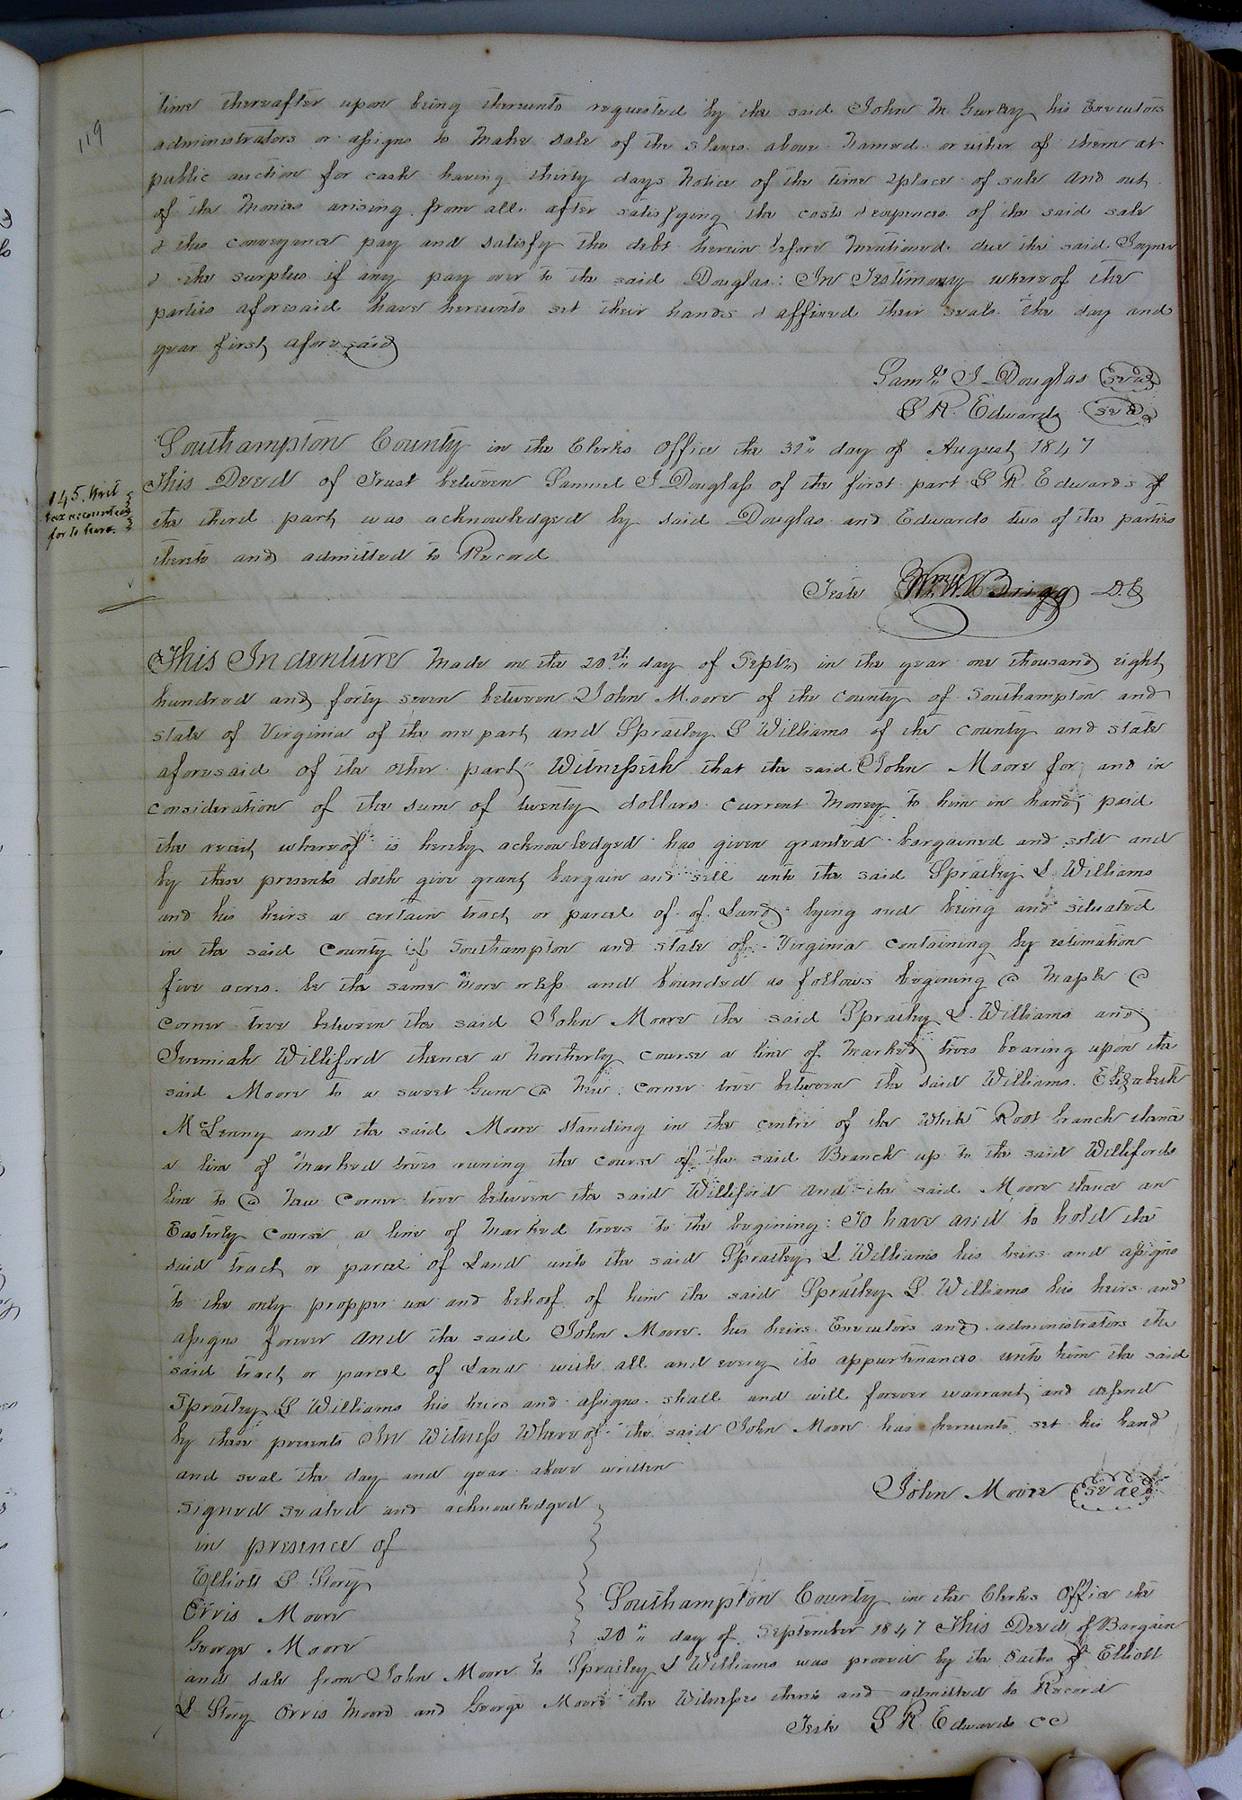 119
time thereafter upon being thereunto requested by the said John M Gurley his Executors
administrators or assigns to make sale of the slaves above named or either of them at
public auction for cash having thirty days Notice of the time & place of sale and out
of the Monies arising from all after satisfying the costs & expences of the said sale
& this conveyance pay and satisfy the debt herein before mentioned due the said Joyner
& the surplus if any pay over to the said Douglas: In Testimony whereof the
parties aforesaid have hereunto set their hands & affixed their seals the day and
year first afore said
Saml. J Douglas (Seal)
S R. Edwards (Seal)
Southampton County in the Clerks Office the 31st day of August 1847
This Deed of Trust between Samuel J Douglass of the first part S R. Edwards of
the third part was acknowledged by said Douglas and Edwards two of the parties
thereto and admitted to Record
145. Writ
tax accounted
for to here.
Teste Wm. W. Briggs D.C
This Indenture Made on the 20th day of Septr in the year one thousand eight
hundred and forty seven between John Moore of the County of Southampton and
state of Virginia of the one part and Spratley S Williams of the county and state
aforesaid of the other part Witnesseth that the said John Moore for and in
consideration of the sum of twenty dollars current Money to him in hand paid
the receit whereof is hereby acknowledged has given granted bargained and sold and
by these presents doth give grant bargain and sell unto the said Spratley S. Williams
and his heirs a certain tract or parcel of of Land lying and being and situated
in the said County of Southampton and state of Virginia containing by estimation
five acres be the same More or less and bounded as follows begining @ Maple @
corner tree between the said John Moore the said Spratley S. Williams and
Jeremiah Williford thence a Northerly course a line of Marked trees bearing upon the
said Moore to a sweet Gum @ New corner tree between the said Williams. Elizabeth
McLenny and the said Moore standing in the centre of the White Root branch thence
a line of Marked trees runing the course of the said Branch up to the said Willifords
line to @ New Corner tree between the said Williford and the said Moore thence an
Easterly course a line of Marked trees to the begining: To have and to hold the
said tract or parcel of Land unto the said Spratley S Williams his heirs and assigns
to the only propper use and behoof of him the said Spratley S. Williams his heirs and
assigns forever and the said John Moore his heirs Executors and administrators the
said tract or parcel of Land with all and every its appurtenances unto him the said
Spratley S Williams his heirs and assigns shall and will forever warrant and defend
by these presents In Witness Whereof the said John Moore has hereunto set his hand
and seal the day and year above written
John Moore (Seal)
Signed sealed and acknowledged
in presence of
Elliott S Story
Orris Moore
George Moore
Southampton County in the Clerks Office the
20th day of September 1847 This Deed of Bargain
and sale from John Moore to Spratley S Williams was proved by the Oaths of Elliott
S Story Orris Moore and George Moore the Witnesses thereto and admitted to Record
Teste S R Edwards CC